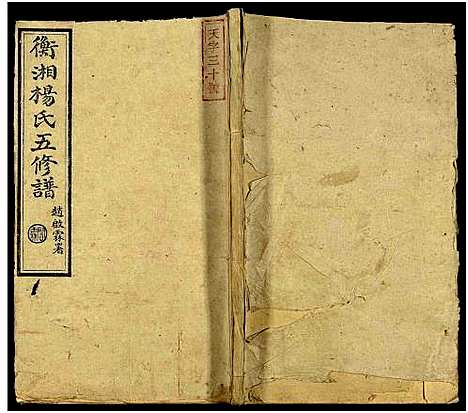 衡湘楊氏五修譜
趙啟霖署
天字三十號